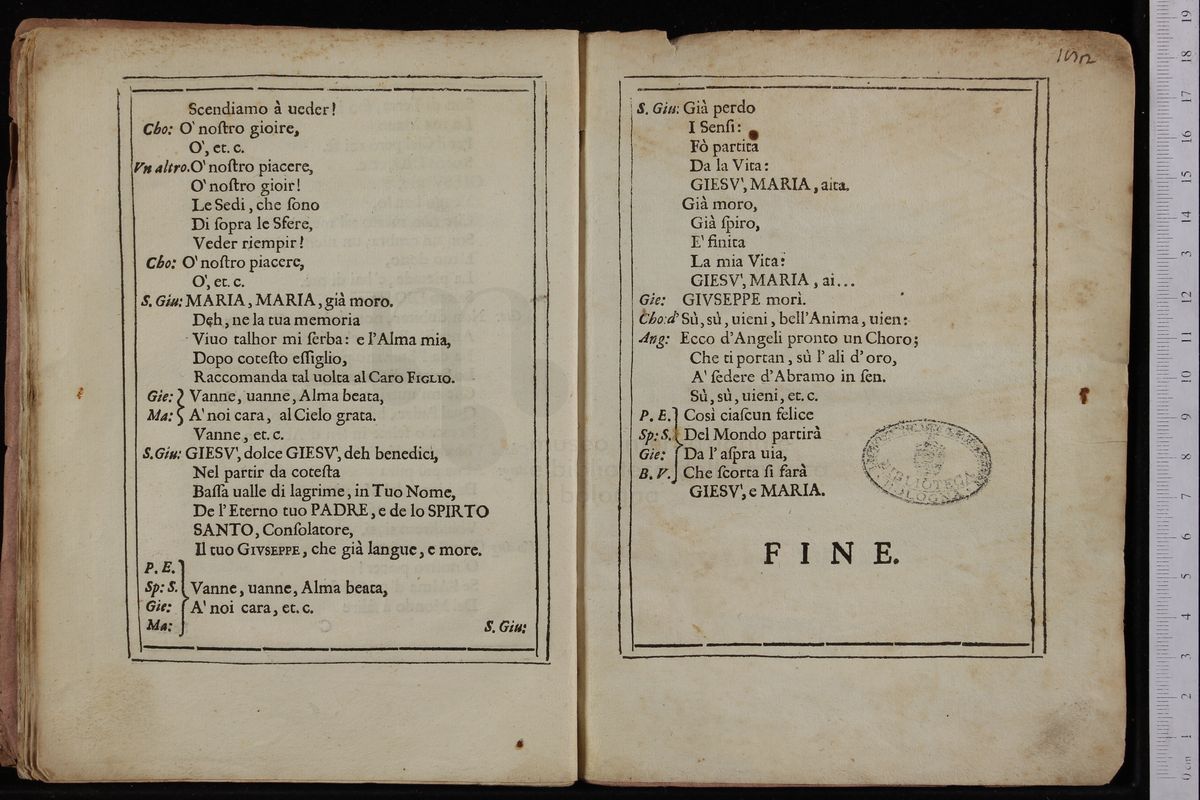 Scendiamo à ueder!
Cho: O' noſtro gioire,
O', et. c.
Vn altro. O' noſtro piacere,
O' noſtro gioir!
Le Sedi, che ſono
Di ſopra le Sfere,
Veder riempir!
Cho: O' noſtro piacere,
O', et. c.
S. Giu: MARIA, MARIA, già moro.
Deh, ne la tua memoria
Viuo talhor mi ſerba: e l'Alma mia,
Dopo coteſto eſſiglio,
Raccomanda tal uolta al Caro FIGLIO.
Gie: } Vanne, uanne, Alma beata,
Ma: } A' noi cara, al Cielo grata.
Vanne, et. c.
S. Giu: GIESV', dolce GIESV', deh benedici,
Nel partir da coteſta
Baſſa ualle di lagrime, in Tuo Nome,
De l'Eterno tuo PADRE, e de lo SPIRTO
SANTO, Conſolatore,
Il tuo GIVSEPPE, che già langue, e more.
P. E. }
Sp: S. } Vanne, uanne, Alma beata,
Gie: } A' noi cara, et. c.
Ma: }
S. Giu:
S. Giu: Già perdo
I Senſi:
Fò partita
Da la Vita:
GIESV', MARIA, aita.
Già moro,
Già ſpiro,
E' finita
La mia Vita:
GIESV', MARIA, ai...
Gie: GIVSEPPE morì.
Cho: d' Sù, sù, uieni, bell'Anima, uien:
Ang: Ecco d'Angeli pronto un Choro;
Che ti portan, sù l'ali d'oro,
A' ſedere d'Abramo in ſen.
Sù, sù, uieni, et. c.
P. E. } Così ciaſcun felice
Sp: S. } Del Mondo partirà
Gie: } Da l'aſpra uia,
B. V. } Che ſcorta ſi farà
GIESV', e MARIA.
FINE.
BIBLIOTECA
BOLOGNA